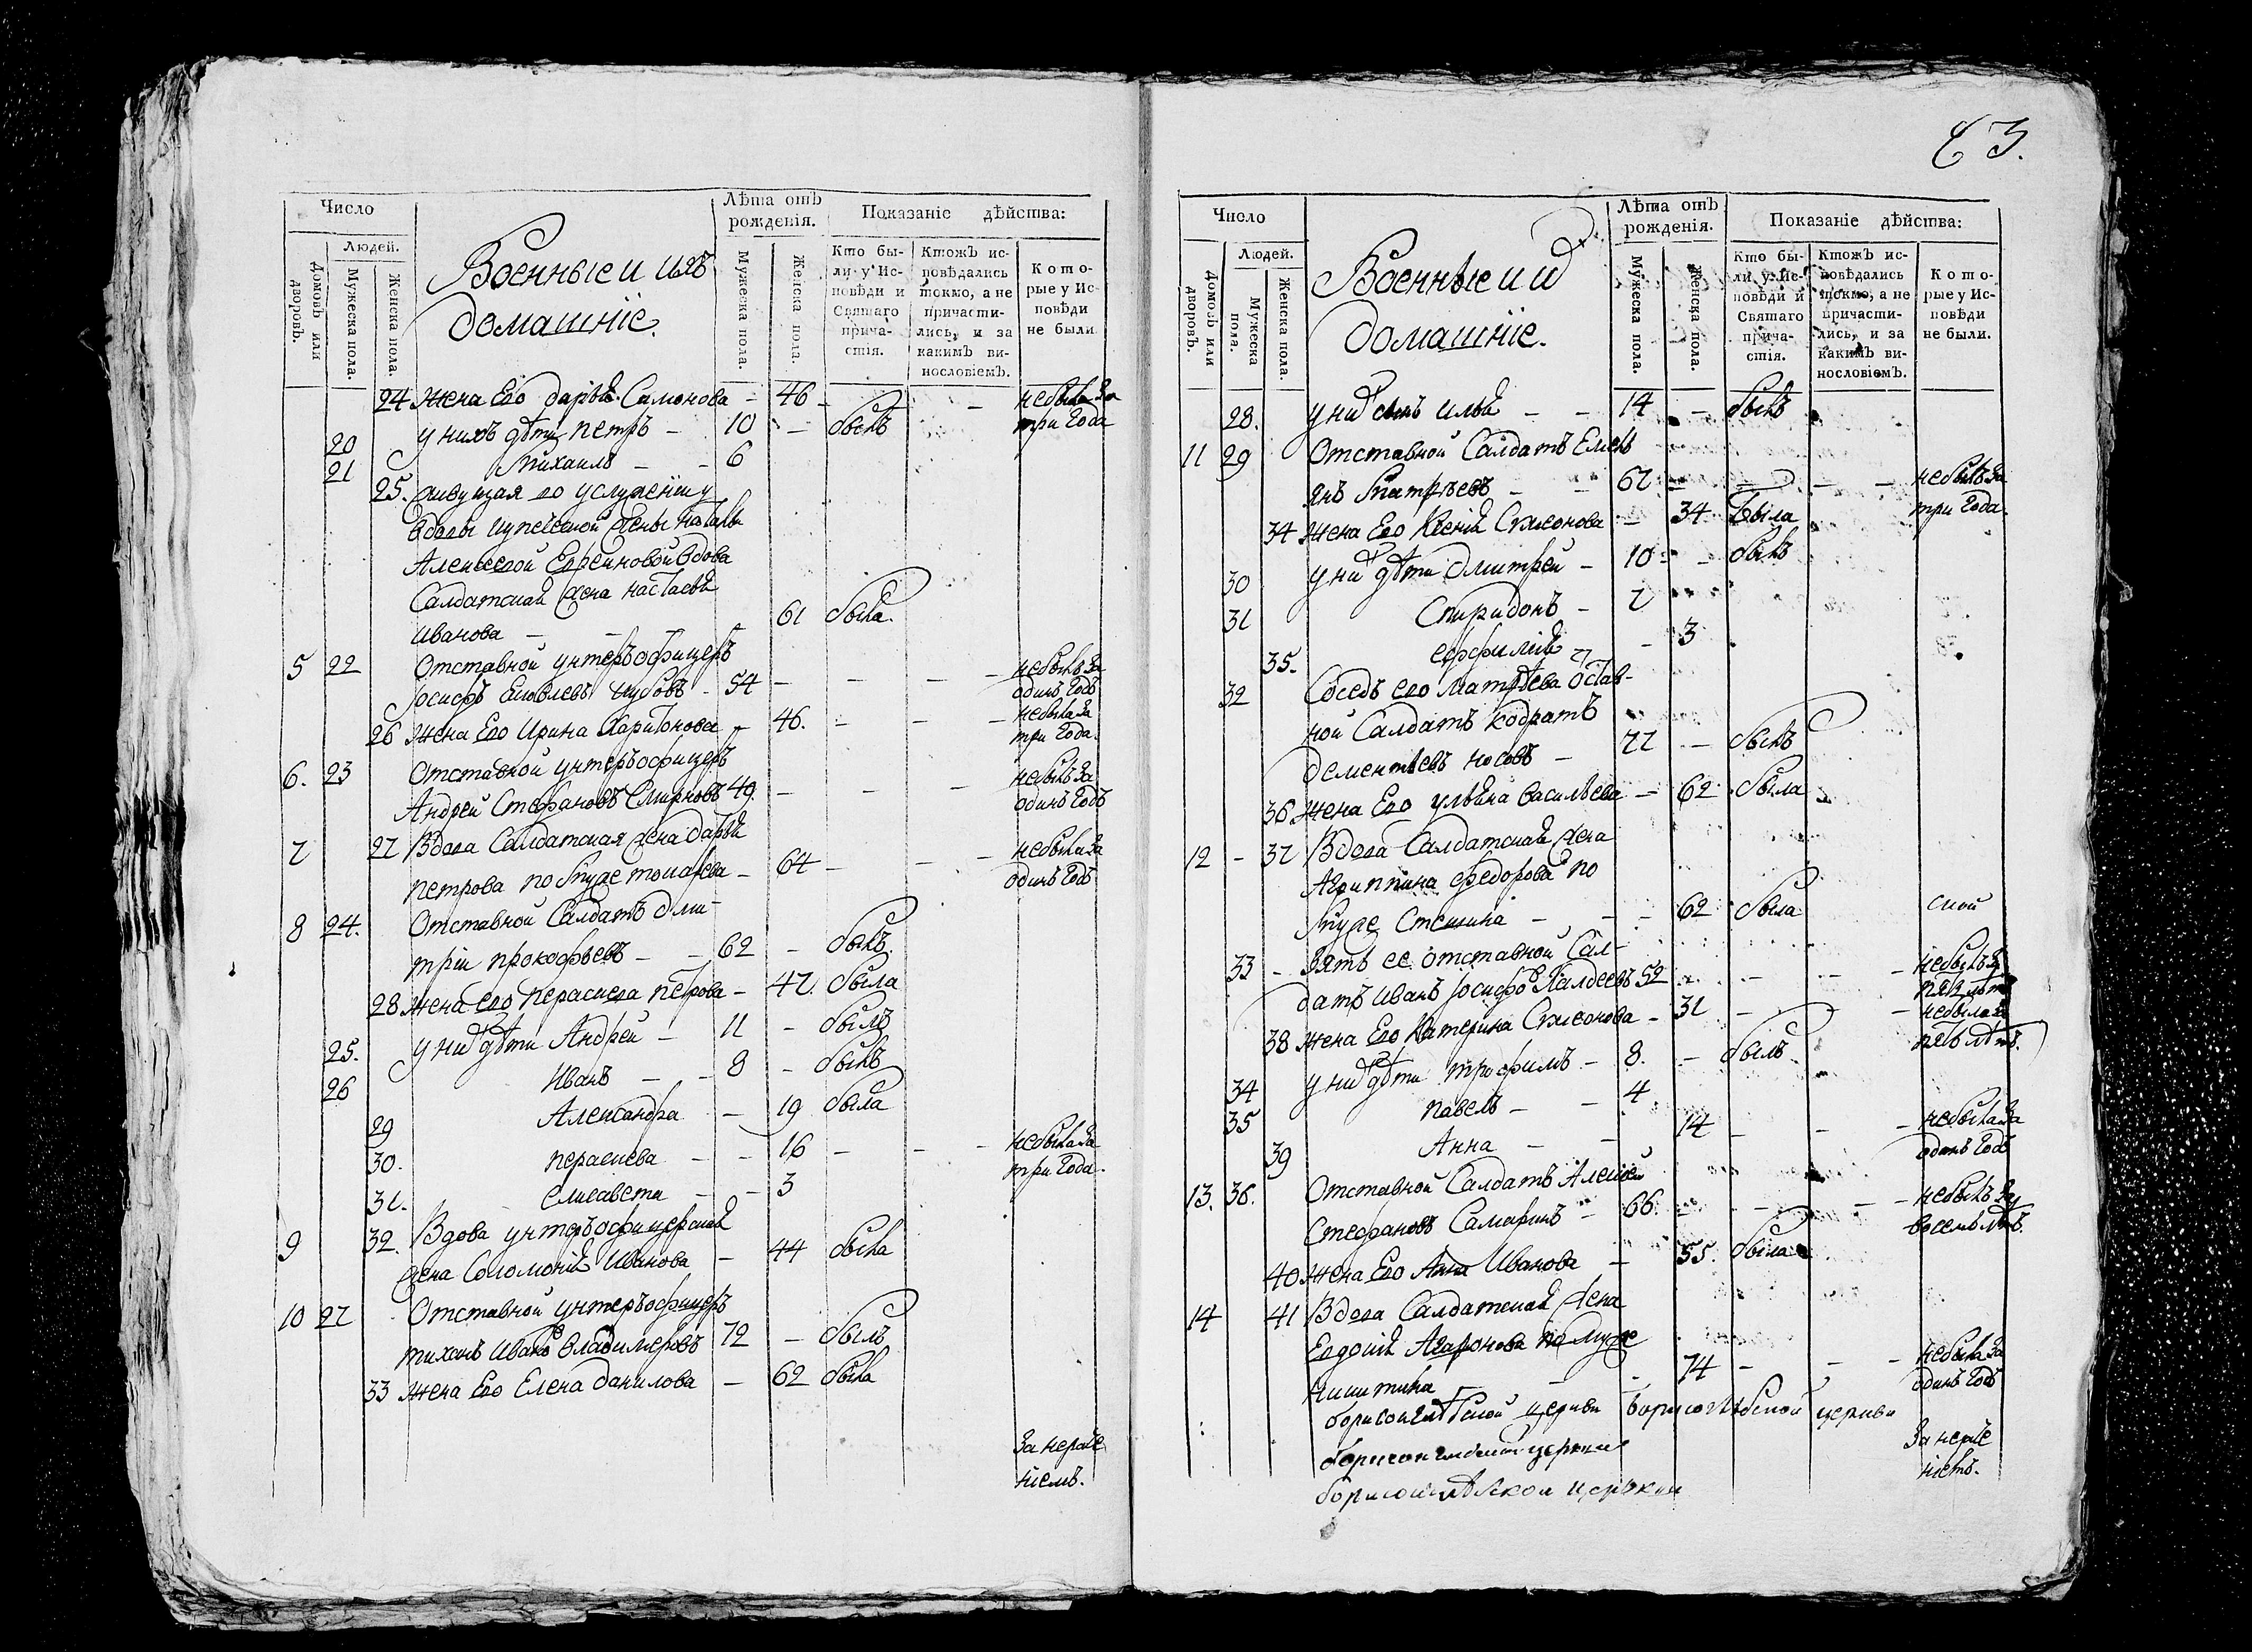 Число
Лѣта отъ рожденія.
Показаніе дѣйства:
Людей.
Домовъ или дворовъ.
Мужеска пола.
Женска пола.
Военные и ихъ
домашніе.
Мужеска пола.
Женска пола.
Кто бы-
ли у Ис-
повѣди и
Святаго
прича-
стія.
Ктожъ ис-
повѣдались
токмо, а не
причасти-
лись, и за
какимъ ви-
нословіемъ.
Кото-
рые у Ис-
повѣди
не были.
24 Жена Его дарья Симонова - 46 - - небыла за
20 у нихъ дѣти петръ - 10 - былъ три года
21 Михаилъ - - 6
25. живущая во услуженіи у
вдовы купецкой жены Натальи
Алексеевой вдова
Салдатская жена настасья
иванова - - - 61 была.
5 22 Отставной унтеръофицеръ небылъ за
Іосифъ Яковлевъ - 54 - - - одинъ годъ
26 Жена Его Ирина Харитонова - 46. - - - небыла за три года.
6. 23 Отставной унтеръофицеръ небылъ за
Андрей Стефановъ Смирновъ 49. - - - одинъ годъ
7 27 Вдова Салдатская жена дарья небыла за
петрова по муже токарева - 64 - - - одинъ годъ
8 24. Отставной Салдатъ дми-
трій прокофьевъ - - 62 - былъ
28 Жена его Параскева петрова - 47. была
25. у них дѣти Андрей - 11 - былъ
26 Иванъ - - 8 - былъ
29 Александра - 19 была
30. параскева - - 16 - - - небыла за три года.
31. елисавета - - 3
9 32. Вдова унтеръофицерская
жена Соломонія Иванова - 44 была
10 27 Отставной унтеръофицеръ
тихонъ Ивановъ владимеровъ 72 - былъ
33 Жена Его Елена данилова - 62 была
За нераде
ніемъ.
63.
Число
Лѣта отъ рожденія.
Показаніе дѣйства:
Людей.
Домовъ или дворовъ.
Мужеска пола.
Женска пола.
Военные и их
домашніе.
Мужеска пола.
Женска пола.
Кто бы-
ли у Ис-
повѣди и
Святаго
прича-
стія.
Ктожъ ис-
повѣдались
токмо, а не
причасти-
лись, и за
какимъ ви-
нословіемъ.
Кото-
рые у Ис-
повѣди
не были.
28. у них сынъ илья - - 14 - былъ
11 29 Отставной Салдатъ Емель
янъ Матвѣевъ - - 67 - - - - небылъ за
34 Жена Его Ксенія Симеонова - 34 Была три года.
30 у них дѣти дмитрей - 10 - - былъ
31 Спиридонъ - 7
35. ефимія - 3
32 Соседъ его матвѣева Остав-
ной Салдатъ кодратъ
дементьевъ носовъ - 77 - былъ
36 Жена Его ульяна васильева - 62 была
12 - 37 Вдова Салдатская жена
Агриппина федорова по
муже - - - 62 была ской
33 - Зять ее отставной Сал-
датъ Иванъ Іосифов 52 - - - небылъ за пять лѣтъ
38 Жена Его Катерина Симеонова - 31 - - небыла за пять лѣтъ.
34 у них дѣти трофимъ - 8. - былъ
35 павелъ - - 4.
39 Анна - - 14 - - - небыла за одинъ годъ
13. 36. Отставной Салдатъ Алексѣй
Стефановъ Самаринъ - 66. - - - небылъ за восемь лѣтъ.
40 Жена Его Анна Иванова - 55. была
14 41 Вдова Салдатская жена
Евдокія Агафонова по муже
никитина - - - 74 - - - небыла за одинъ годъ
борисоглѣбской церкви борисоглѣбской церкви
борисоглебской церкви За нераде
борисоглѣбской церкви ніемъ.